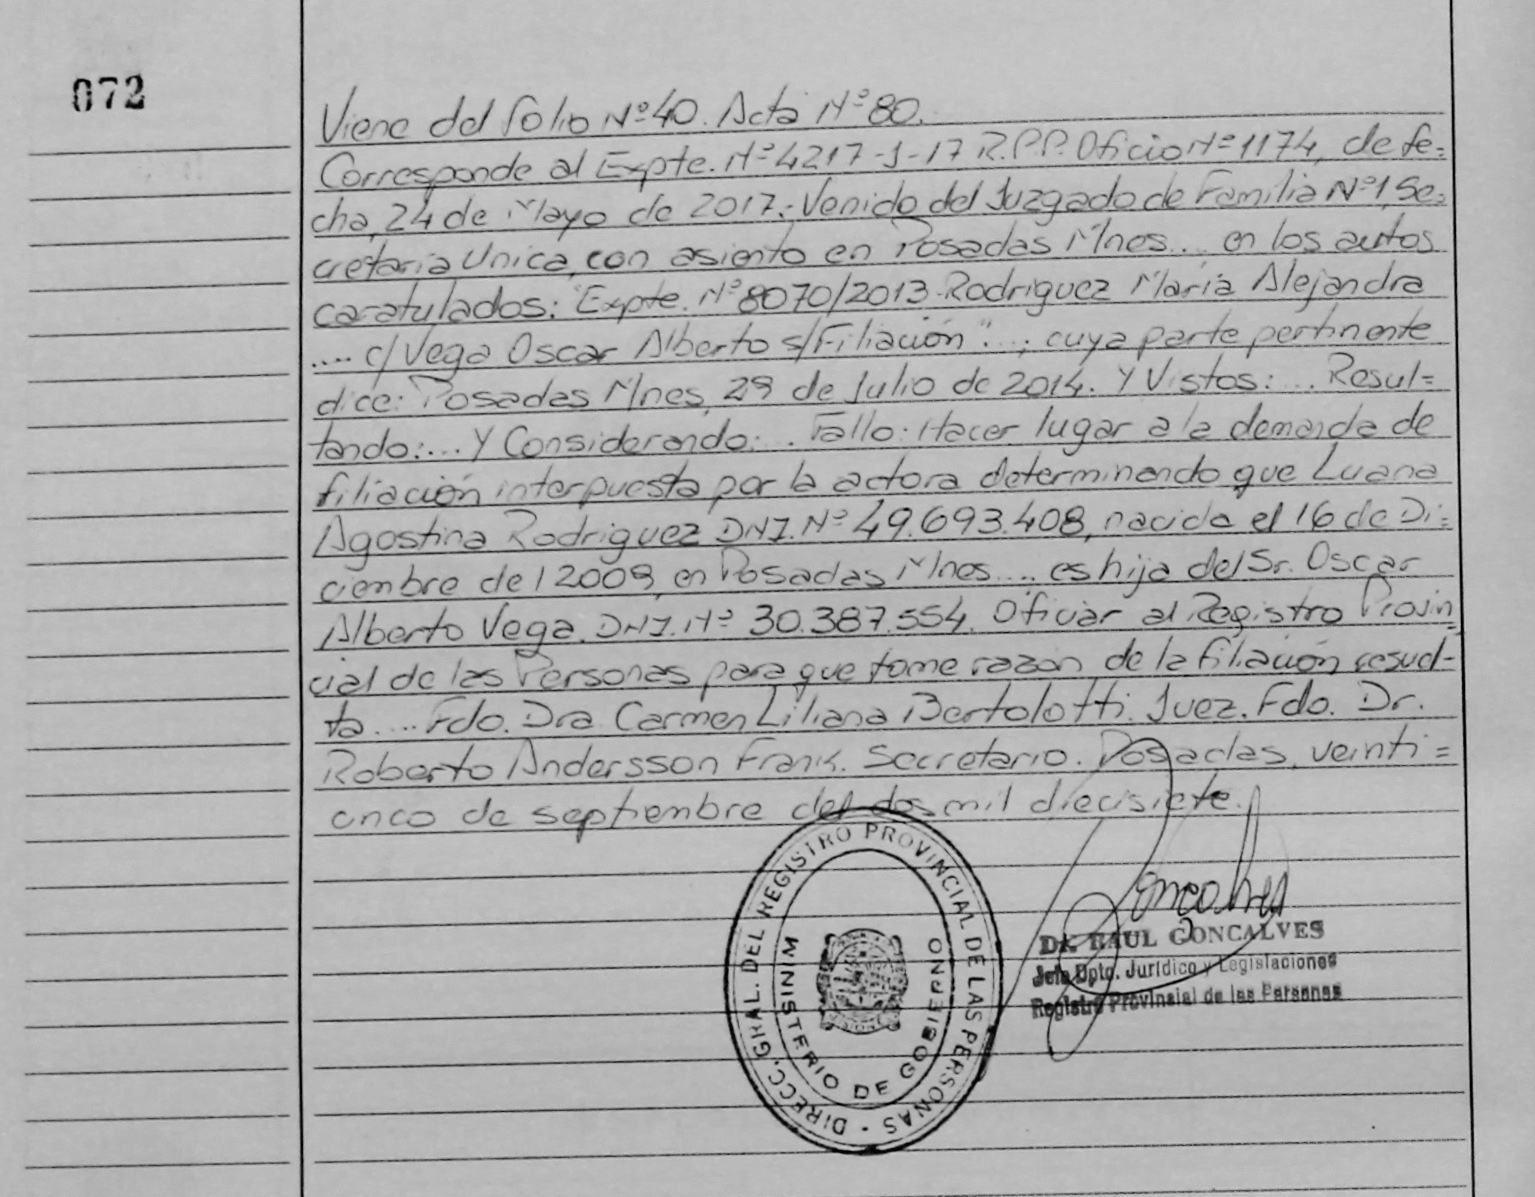 072
Viene del folio Nº 40. Acta Nº 80.
Corresponde al Expte. Nº 4217-J-17 R.P.P. Oficio Nº 1174, de fe=
cha, 24 de Mayo de 2017. Venido del Juzgado de Familia Nº 1, Se=
cretaria Unica, con asiento en Posadas Mnes... en los autos
caratulados: "Expte. Nº 8070/2013 Rodriguez María Alejandra
.... c/ Vega Oscar Alberto s/ Filiación"..; cuya parte pertinente
dice: Posadas Mnes, 29 de Julio de 2014. Y Vistos:... Resul=
tando:... Y Considerando:... Fallo: Hacer lugar a la demanda de
filiación interpuesta por la actora determinando que Luana
Agostina Rodriguez DNI. Nº 49.693.408, nacida el 16 de Di=
ciembre del 2009, en Posadas Mnes.... es hija del Sr. Oscar
Alberto Vega. DNI. Nº 30.387.554. Oficiar al Registro Provin
cial de las Personas para que tome razon de la filiación resuel=
ta.... Fdo. Dra Carmen Liliana Bertolotti. Juez. Fdo. Dr.
Roberto Andersson Frank. Secretario. Posadas, veinti=
cinco de septiembre del dos mil diecisiete.
DIRECC. GRAL. DEL REGISTRO PROVINCIAL DE LAS PERSONAS -
MINISTERIO DE GOBIERNO
Goncalves
Dr. RAUL GONCALVES
Jefe Dpto. Jurídico y Legislaciones
Registro Provincial de las Personas